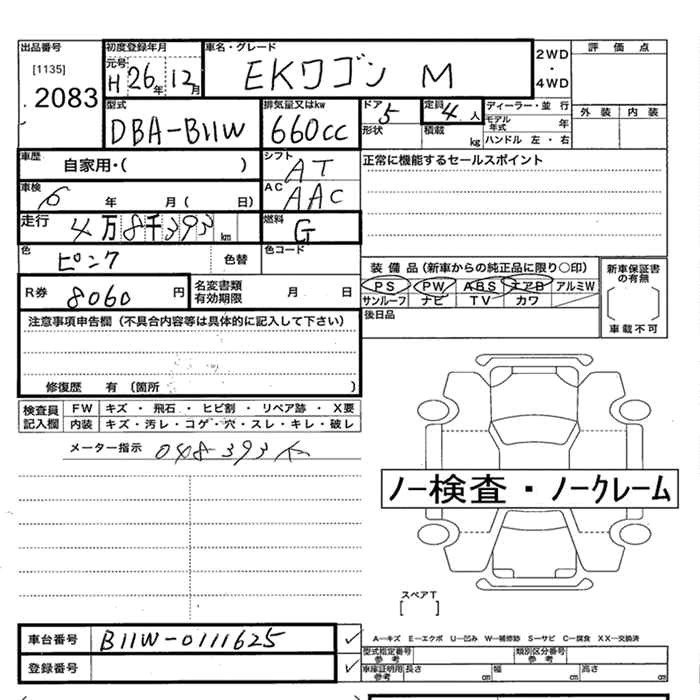 出品番号 初度登録年月 車名・グレード 2WD・4WD 評価点
[1135] 元号 H 26年 12月 EKワゴン M
2083
型式 排気量又はkw ドア 5 定員 4人 ディーラー・並行 外装 内装
DBA-B11W 660cc 形状 積載 kg モデル年式 年
ハンドル 左・右
車歴 自家用・( ) シフト AT 正常に機能するセールスポイント
車検 6年 月( 日) AC AAC
走行 4万8千393km 燃料 G
色 ピンク 色替 色コード
装備品(新車からの純正品に限り○印) 新車保証書の有無
R券 8060円 名変書類有効期限 月 日 PS PW ABS エアB アルミW
サンルーフ ナビ TV カワ
車載不可
注意事項申告欄(不具合内容等は具体的に記入して下さい) 後日品
修復歴 有(箇所 )
検査員記入欄 FW キズ・飛石・ヒビ割・リペア跡・X要
内装 キズ・汚レ・コゲ・穴・スレ・キレ・破レ
メーター指示 048393
ノー検査・ノークレーム
スペアT
[ ]
車台番号 B11W-0111625 ✓ A—キズ E—エクボ U—凹み W—補修跡 S—サビ C—腐食 XX—交換済
型式指定番号参考 類別区分番号参考
登録番号 ✓ 車庫証明用参考 長さ cm 幅 cm 高さ cm